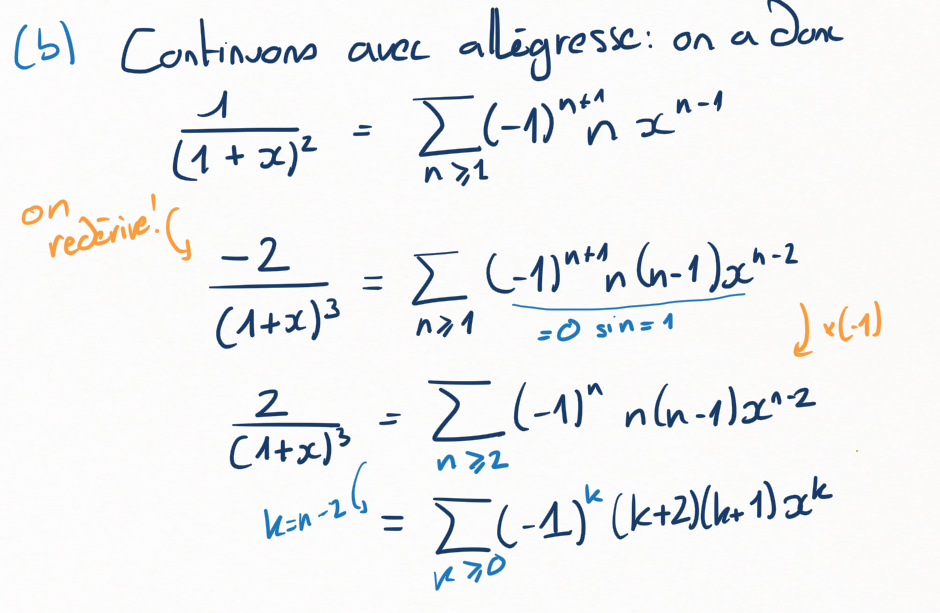 (b) Continuons avec allégresse: on a donc
1/(1 + x)² = ∑_{n⩾1} (-1)^{n+1} n x^{n-1}
on redérive!
-2/(1+x)³ = ∑_{n⩾1} (-1)^{n+1} n (n-1) x^{n-2}
=0 si n=1
×(-1)
2/(1+x)³ = ∑_{n⩾2} (-1)^n n(n-1)x^{n-2}
k=n-2
= ∑_{k⩾0} (-1)^k (k+2)(k+1) x^k